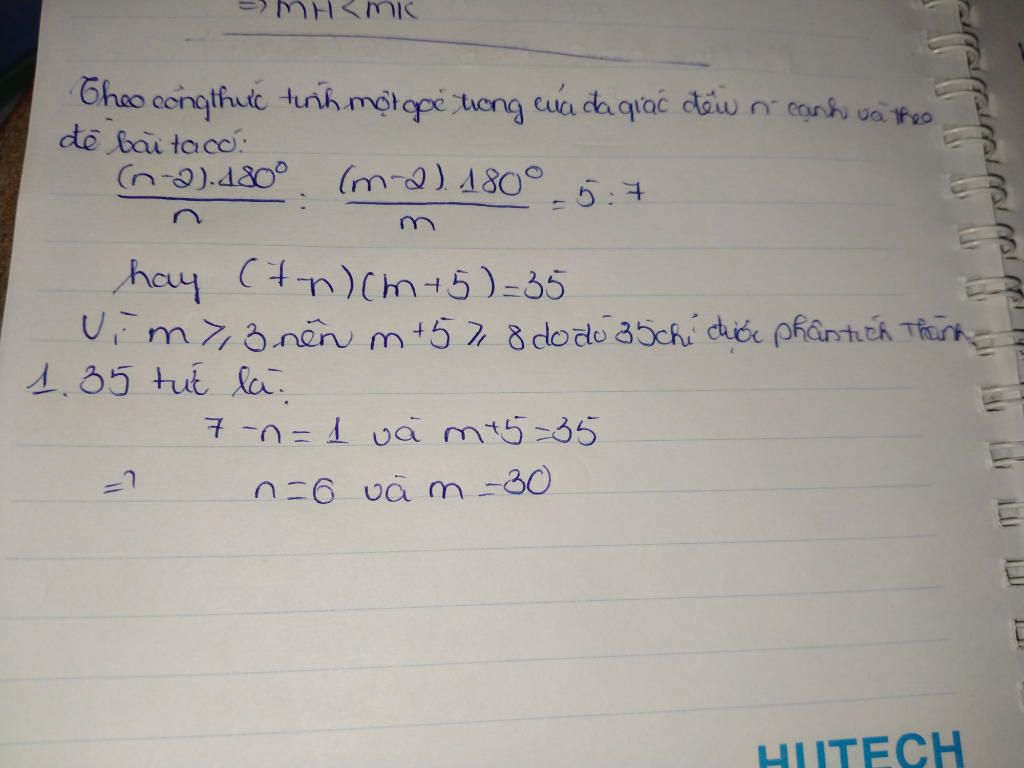 => MH < MK
Theo công thức tính một góc trong của đa giác đều n cạnh và theo
đề bài ta có:
(n-2).180° / n : (m-2).180° / m = 5:7
hay (7-n)(m+5)=35
Vì m ⩾ 3 nên m+5 ⩾ 8 do đó 35 chỉ được phân tích thành
1.35 tức là:
7-n=1 và m+5=35
=> n=6 và m=30
HUTECH